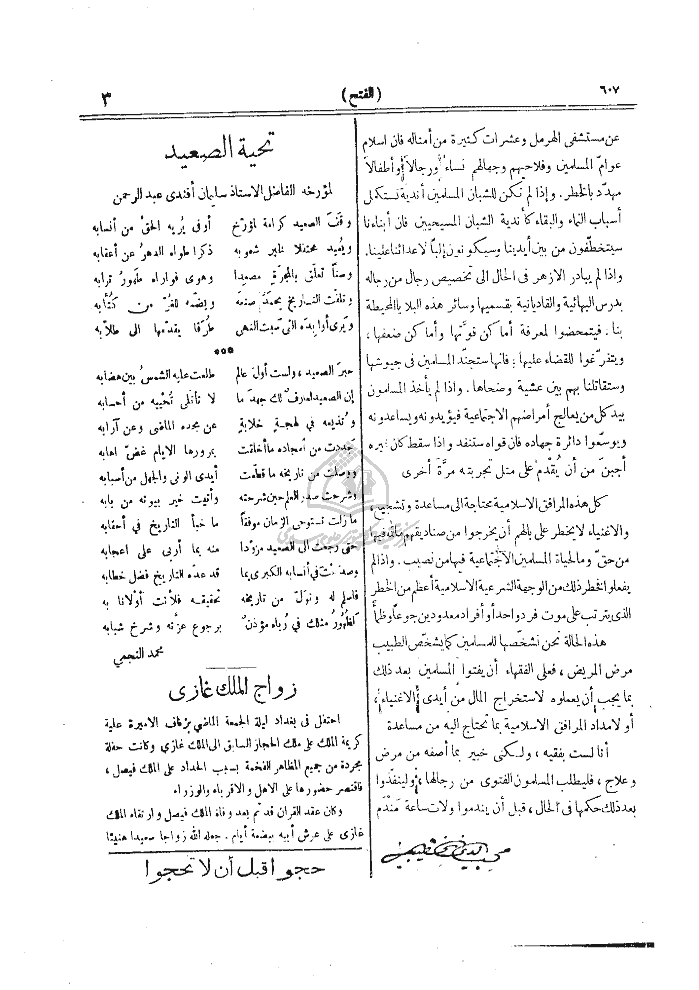 ٦٠٧
(الفتح)
٣
عن مستشفى الهرمل وعشرات كثيرة من أمثاله فان اسلام
عوامّ المسلمين وفلاحيهم وجهالهم نساءً ورجالاً وأطفالاً
مهدّد بالخطر . وإذا لم تكن للشبان المسلمين أندية تستكمل
أسباب النماء والبقاء كأندية الشبان المسيحيين فان أبناءنا
سيتخطّفون من بين أيدينا وسيكونون إلباً لأعدائنا علينا .
واذا لم يبادر الازهر فى الحال الى تخصيص رجال من رجاله
بدرس البهائية والقاديانية بقسميها وسائر هذه البلايا المحيطة
بنا . فيتمحضوا لمعرفة أماكن قوّتها وأماكن ضعفها ،
ويتفرّغوا للقضاء عليها ؛ فانها ستجنّد المسلمين فى جيوشها
وستقاتلنا بهم بين عشية وضحاها . واذا لم يأخذ المسلمون
بيد كل من يعالج أمراضهم الاجتماعية فيؤيدونه ويساعدونه
ويوسّعوا دائرة جهاده فان قواه ستنفد واذا سقط كان غيره
أجبن من أن يُقدم على مثل تجربته مرّة أخرى
كل هذه المرافق الاسلامية محتاجة الى مساعدة وتشجيع ،
والاغنياء لا يخطر على بالهم أن يخرجوا من صناديقهم ما لله فيها
من حقّ وما لحياة المسلمين الاجتماعية فيها من نصيب . واذا لم
يفعلوا فخطر ذلك من الوجهة الشرعية الاسلامية أعظم من الخطر
الذى يترتب على موت فرد واحد أو أفراد معدودين جوعاً وظمأً
هذه الحالة نحن نشخّصها للمسلمين كما يشخّص الطبيب
مرض المريض ، فعلى الفقهاء أن يفتوا المسلمين بعد ذلك
بما يجب أن يعملوه لاستخراج المال من أيدى الاغنياء ،
أو لامداد المرافق الاسلامية بما تحتاج اليه من مساعدة
أنا لست بفقيه ، ولكنى خبير بما أصفه من مرض
وعلاج ، فليطلب المسلمون الفتوى من رجالها ، ولينفذوا
بعد ذلك حكمها فى الحال ، قبل أن يندموا ولات ساعة مندم
محب الدين الخطيب
تحية الصعيد
لمؤرخه الفاضل الاستاذ سليمان أفندى عبد الرحمن
وقف الصعيد كرامة لمؤرّخ أوفى يُريه الحق من أنسابه
ويُعيد محتفلا لخير شعوبه ذكرا طواه الدهر عن أعقابه
وسناً تعلّق بالمجرّة مصعدا وهوى فواراه طهورُ ترابه
وتلفت التاريخ يحمد صنعه ويضمّه للغرّ من كتّابه
ويرى أوابده التى سبت النهى طرفا يقدّمها الى طلّابه
***
حبرَ الصعيد ، ولست أول عالم طلعت عليه الشمس بين هضابه
إن الصعيد لعارف لك جهد ما لا تأتلى تُحييه من أحسابه
وتذيعه فى لهجة خلابةٍ عن مجده الماضى وعن آرابه
جددت من أمجاده ما أخلقت بمرورها الايام غضّ اهابه
ووصلت من تاريخه ما قطّعت أيدى الونى والجهل من أسبابه
وشرحت صدر العلم حين شرحته وأتيت خير بيوته من بابه
ما زلت تستوحى الزمان موفقاً ما خبأ التاريخ فى أحقابه
حتى رجعت الى الصعيد مزوّدا منه بما أربى على اعجابه
وصدعت فى أنسابه الكبرى بما قد عدّه التاريخ فضل خطابه
فاسلم له وتولّ من تاريخه تحقيقه فلأنت أولانا به
لظهورُ مثلك فى رُباه مؤذنٌ برجوع عزّته وشرخ شبابه
محمد النجمي
زواج الملك غازى
احتفل فى بغداد ليلة الجمعة الماضي بزفاف الاميرة علية
كريمة الملك على ملك الحجاز السابق الى الملك غازي وكانت حفلة
مجردة من جميع المظاهر الفخمة بسبب الحداد على الملك فيصل ،
فاقتصر حضورها على الاهل والاقرباء والوزراء
وكان عقد القران قد تم بعد وفاة الملك فيصل وارتقاء الملك
غازى على عرش أبيه ببضعة أيام . جعله الله زواجا سعيدا هنيئا
حجوا قبل أن لا تحجوا